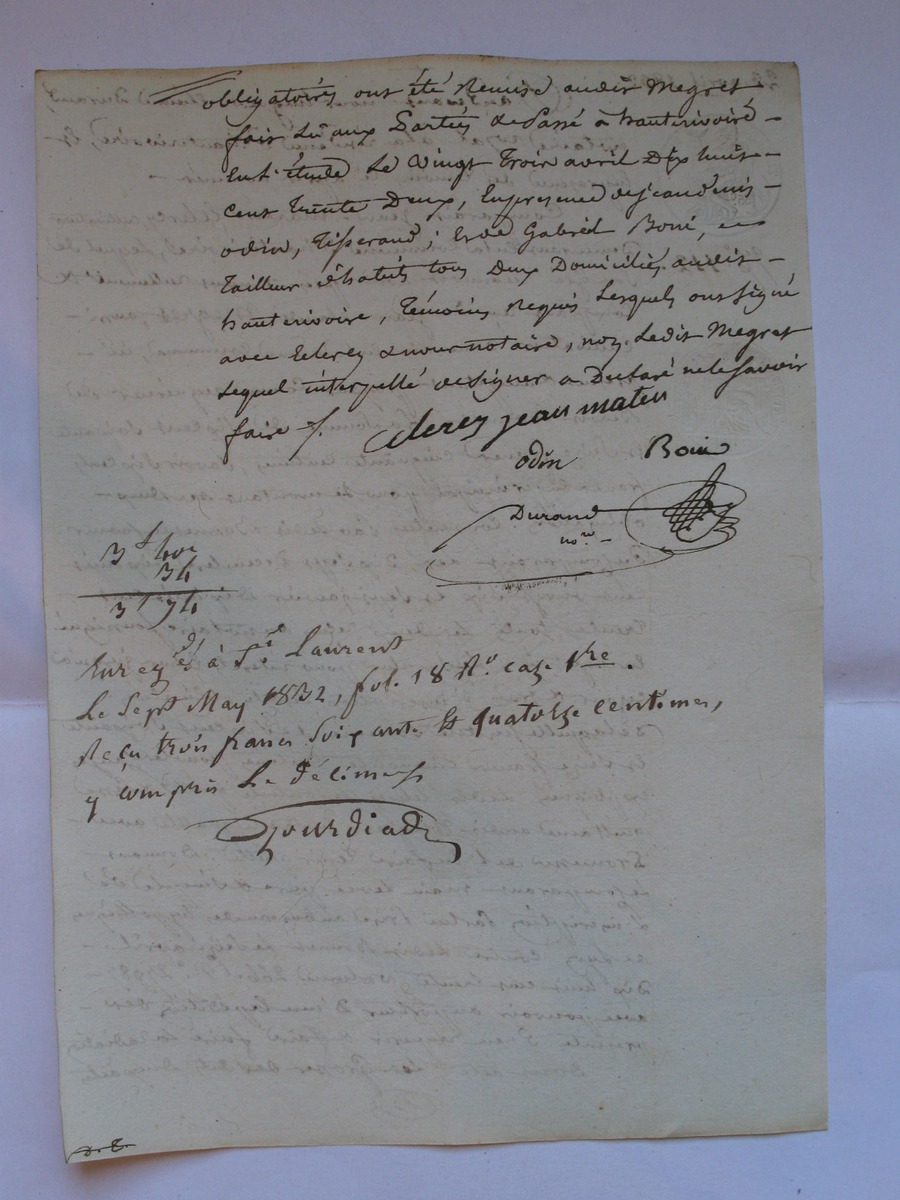 obligatoires ont été Remise audit Megret
fait Lu aux Parties & Passé a hauterivoire
En l'étude Le vingt Trois avril Dix huit
cent Trente Deux, En presence de jean denis
odin, Tisserand, Et de Gabriel Boni,
Tailleur d'habits tous Deux Domiciliés audit
hauterivoire, Témoins Requis Lesquels ont signé
avec Eclerez & nous notaire, non Ledit Megret
Lequel interpellé de signer a Declaré ne le savoir
faire /.
clerez jean mateu
odin Boni
Durand
no.re
3 f 40
34
3 f 74
Enregé à St. Laurent
Le Sept May 1832, fol. 18 Ro. case 1re.
Reçu trois francs Soixante Et quatorze centimes,
y compris Le décime
Gourdiad
D. T.